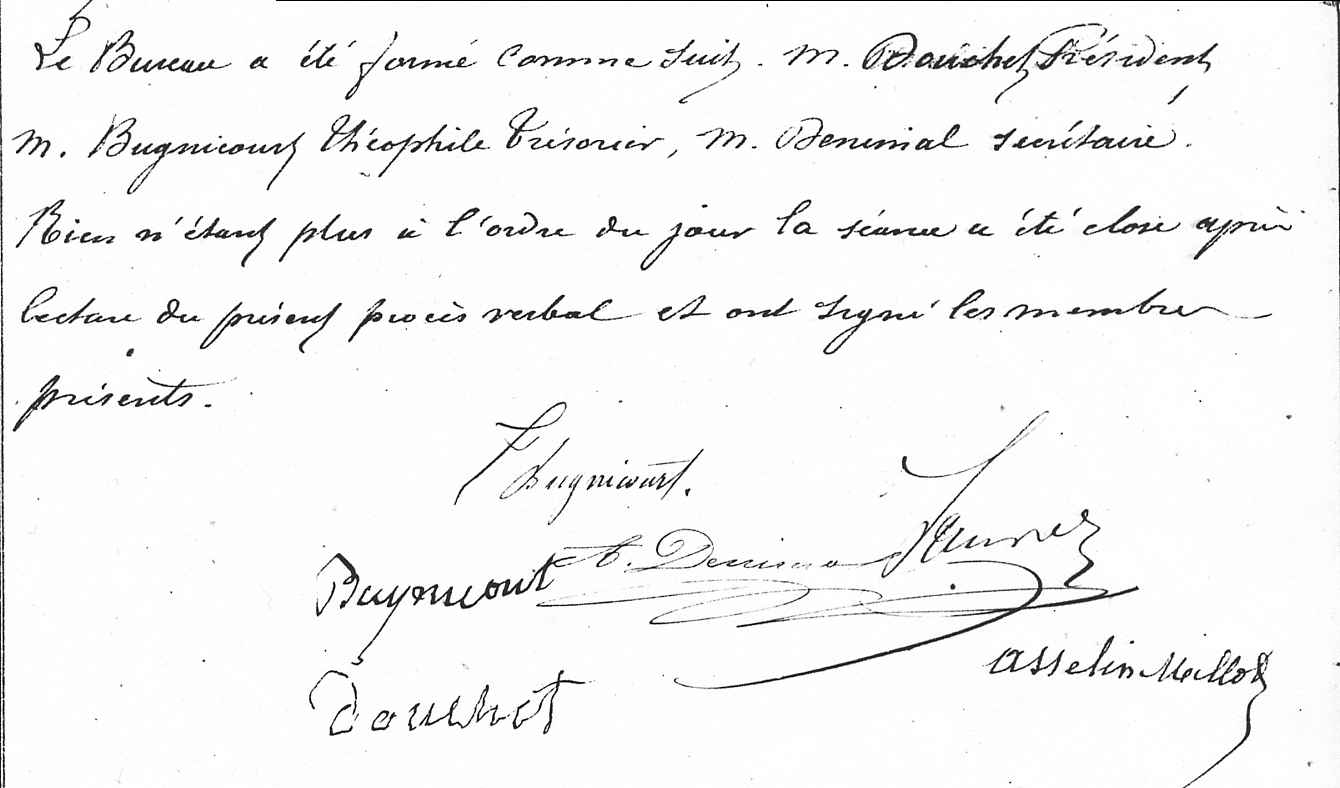 Le Bureau a été formé comme suit. M. Douchet Président
M. Bugnicourt Théophile Trésorier, M. Denimal secrétaire.
Rien n'étant plus à l'ordre du jour la séance a été close après
lecture du présent procès verbal et ont signé les membres
présents.
T Bugnicourt.
Bugnicourt
Douchet
Asselin Maillot